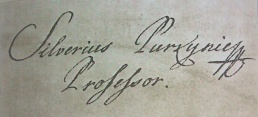 Silverius Purzynieg
Professor.